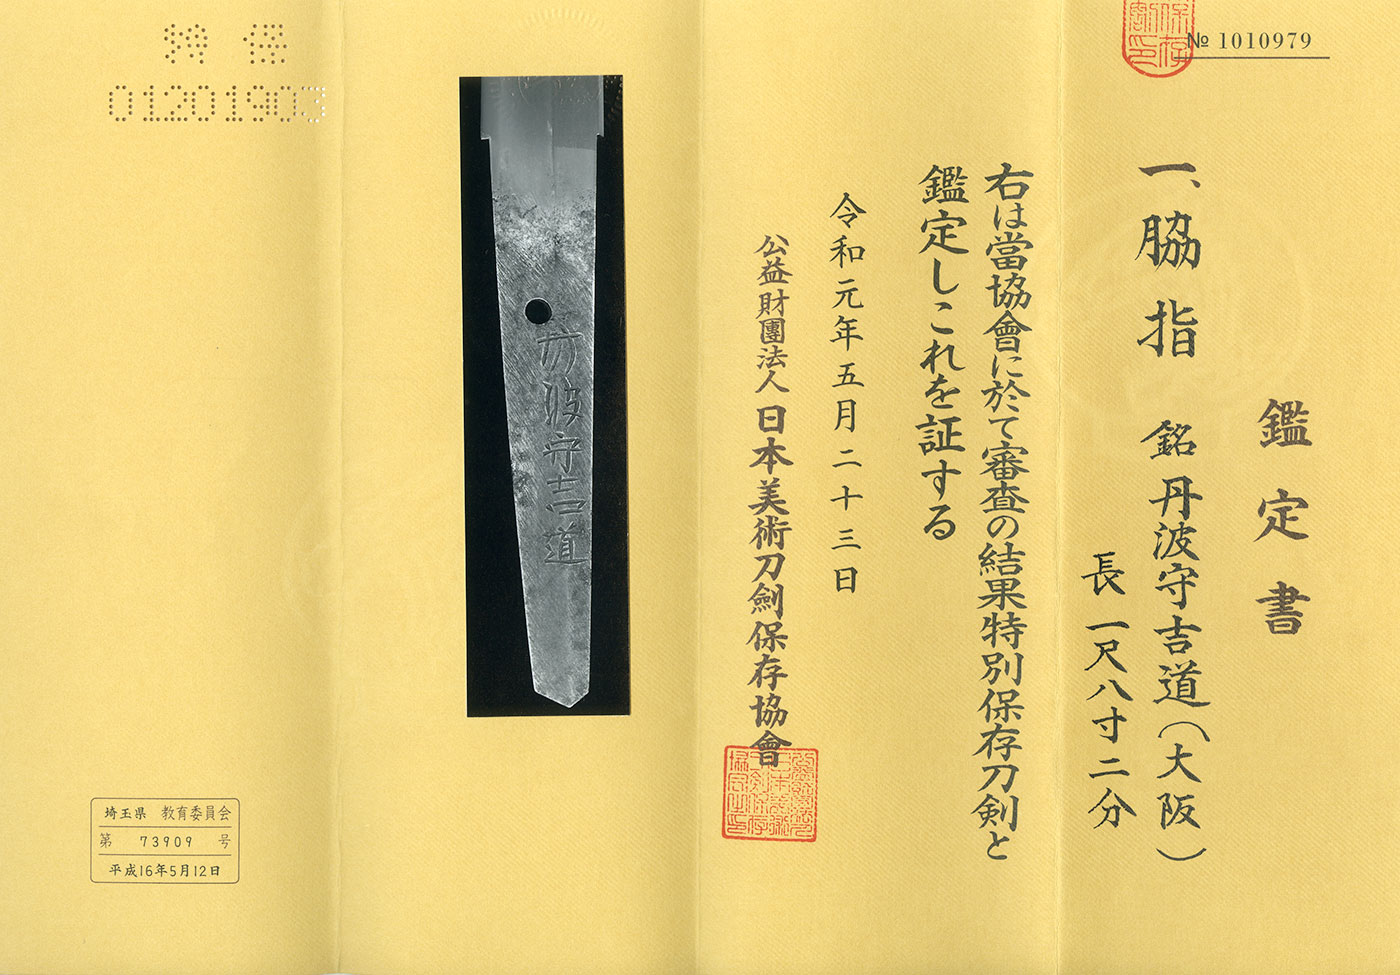 № 1010979
鑑定書
一、脇指 銘 丹波守吉道(大阪)
長 一尺八寸二分
右は當協會に於て審査の結果特別保存刀剣と
鑑定しこれを証する
令和元年五月二十三日
公益財團法人 日本美術刀劍保存協會
丹波守吉道
特保
01201903
埼玉県 教育委員会
第 73909 号
平成16年5月12日